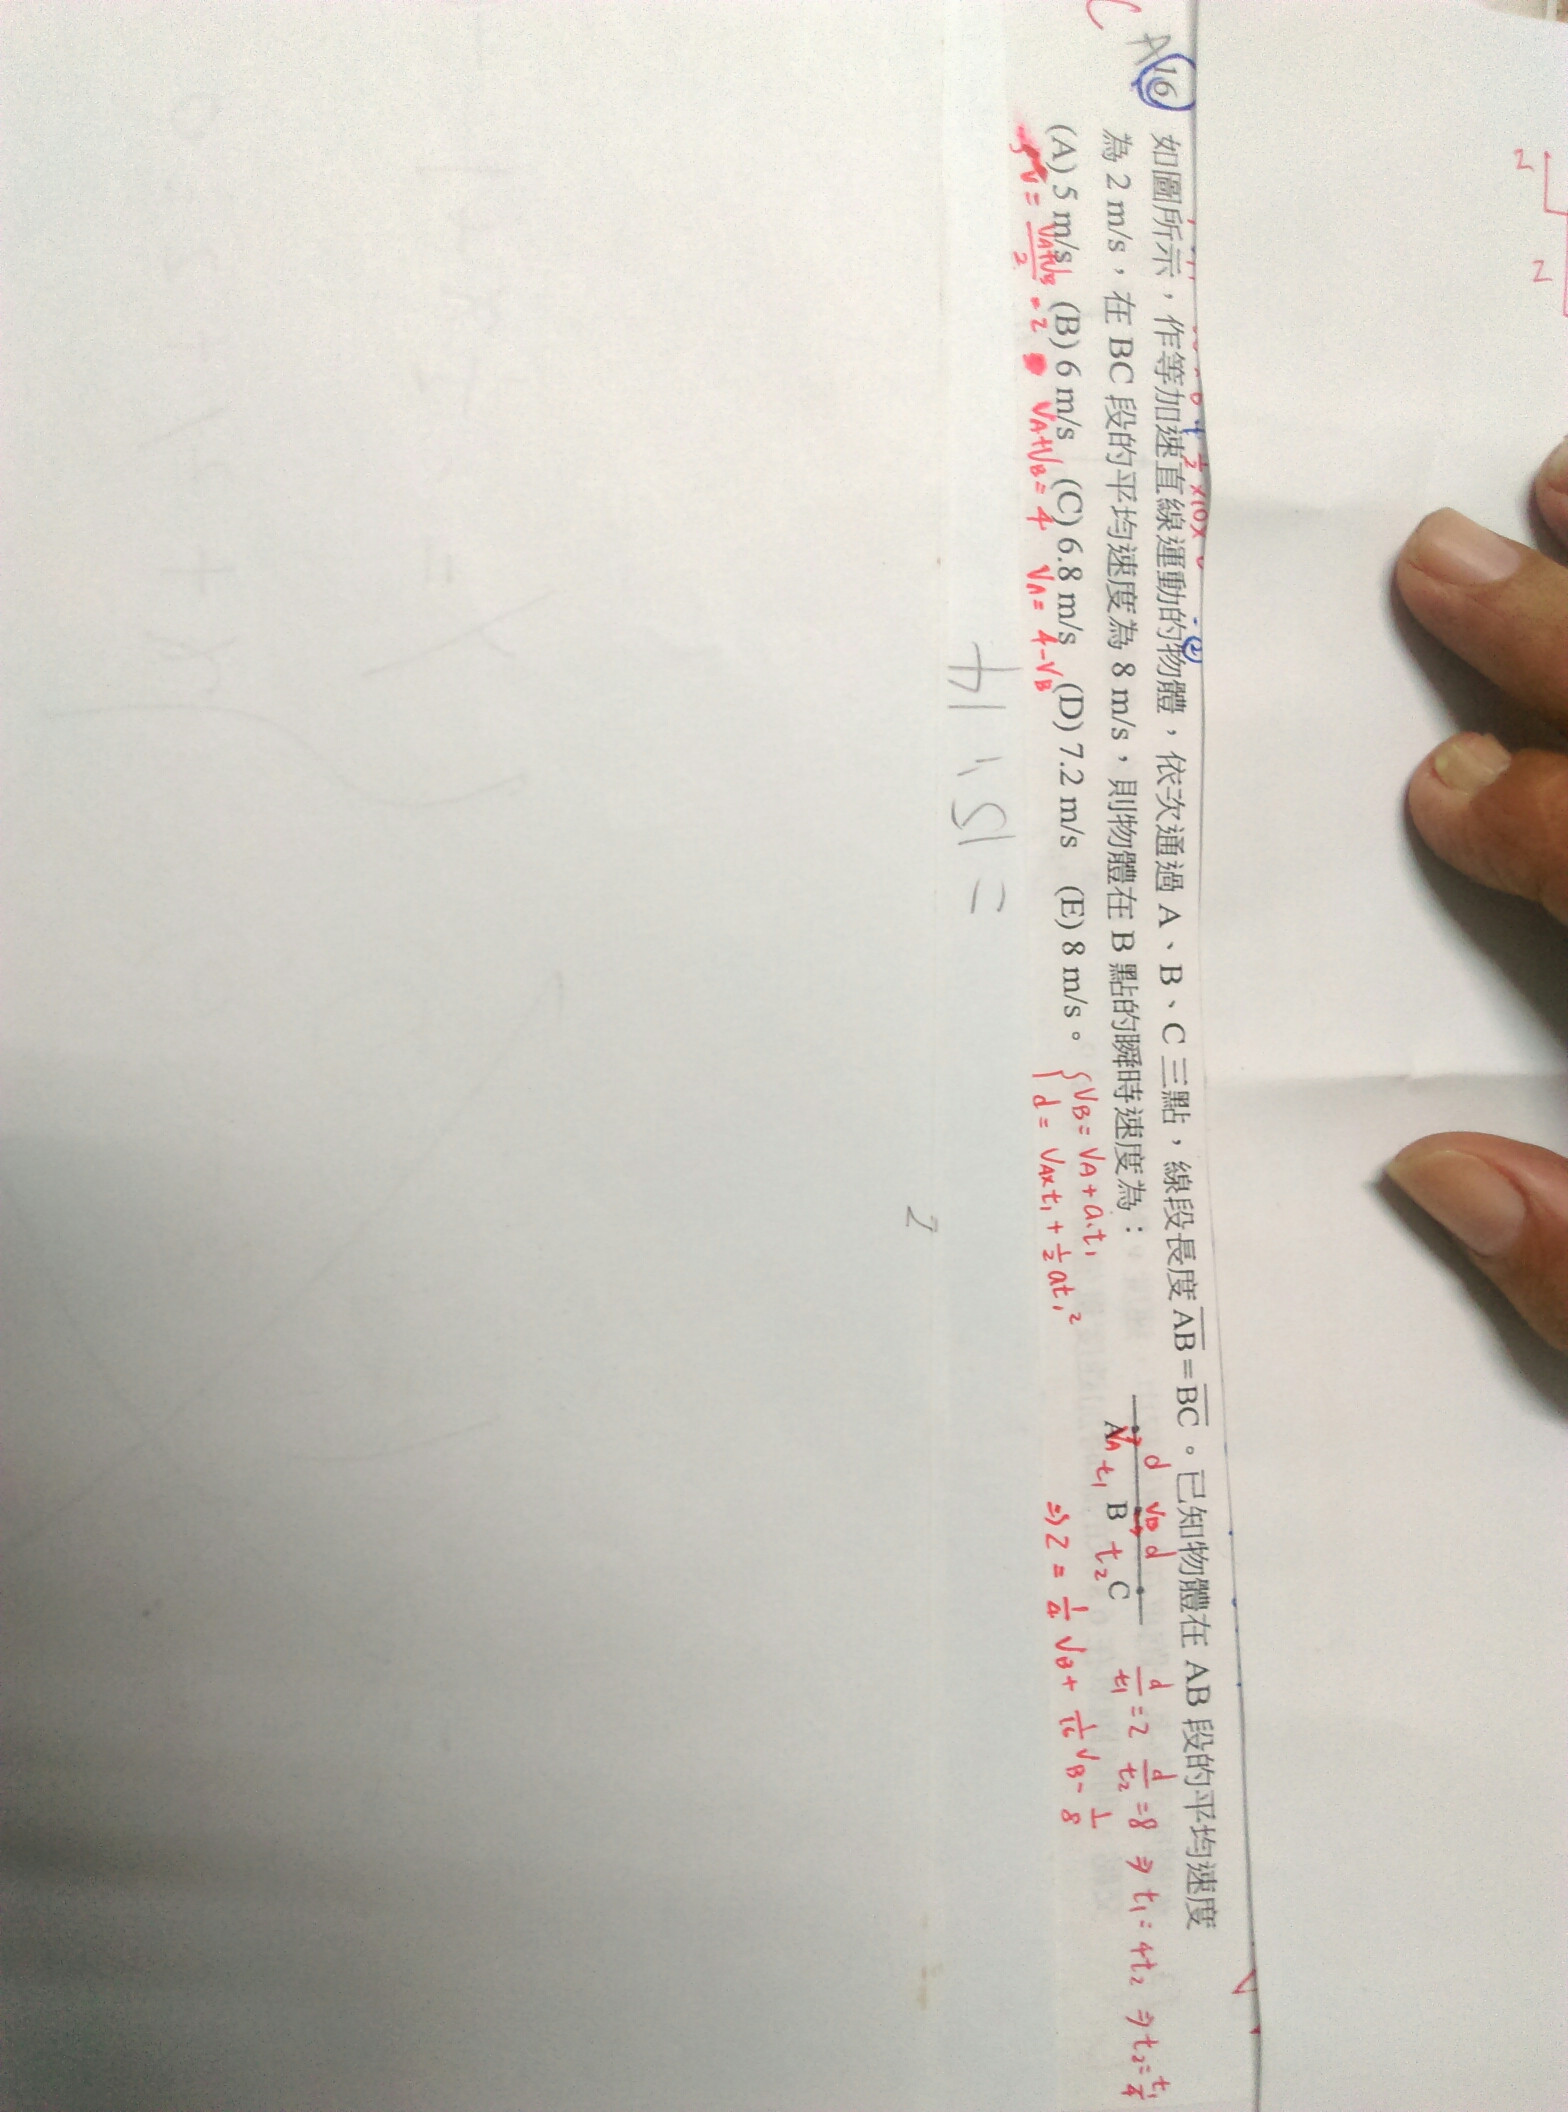 C A 16 如圖所示，作等加速直線運動的物體，依次通過 A、B、C 三點，線段長度 AB=BC。已知物體在 AB 段的平均速度
為 2 m/s，在 BC 段的平均速度為 8 m/s，則物體在 B 點的瞬時速度為：
(A) 5 m/s (B) 6 m/s (C) 6.8 m/s (D) 7.2 m/s (E) 8 m/s。
d VB d
A B C
VA t1 t2
d/t1 = 2 d/t2 = 8 ⇒ t1 = 4t2 ⇒ t2 = t1/4
VB = VA + a1t1
d = VA×t1 + 1/2 at1²
⇒ 2 = 1/4 VB + 1/16 VB - 1/8
V = VA+VB/2 = 2 VA+VB = 4 VA = 4-VB
2
2
1/2 ×10×
(2)
2